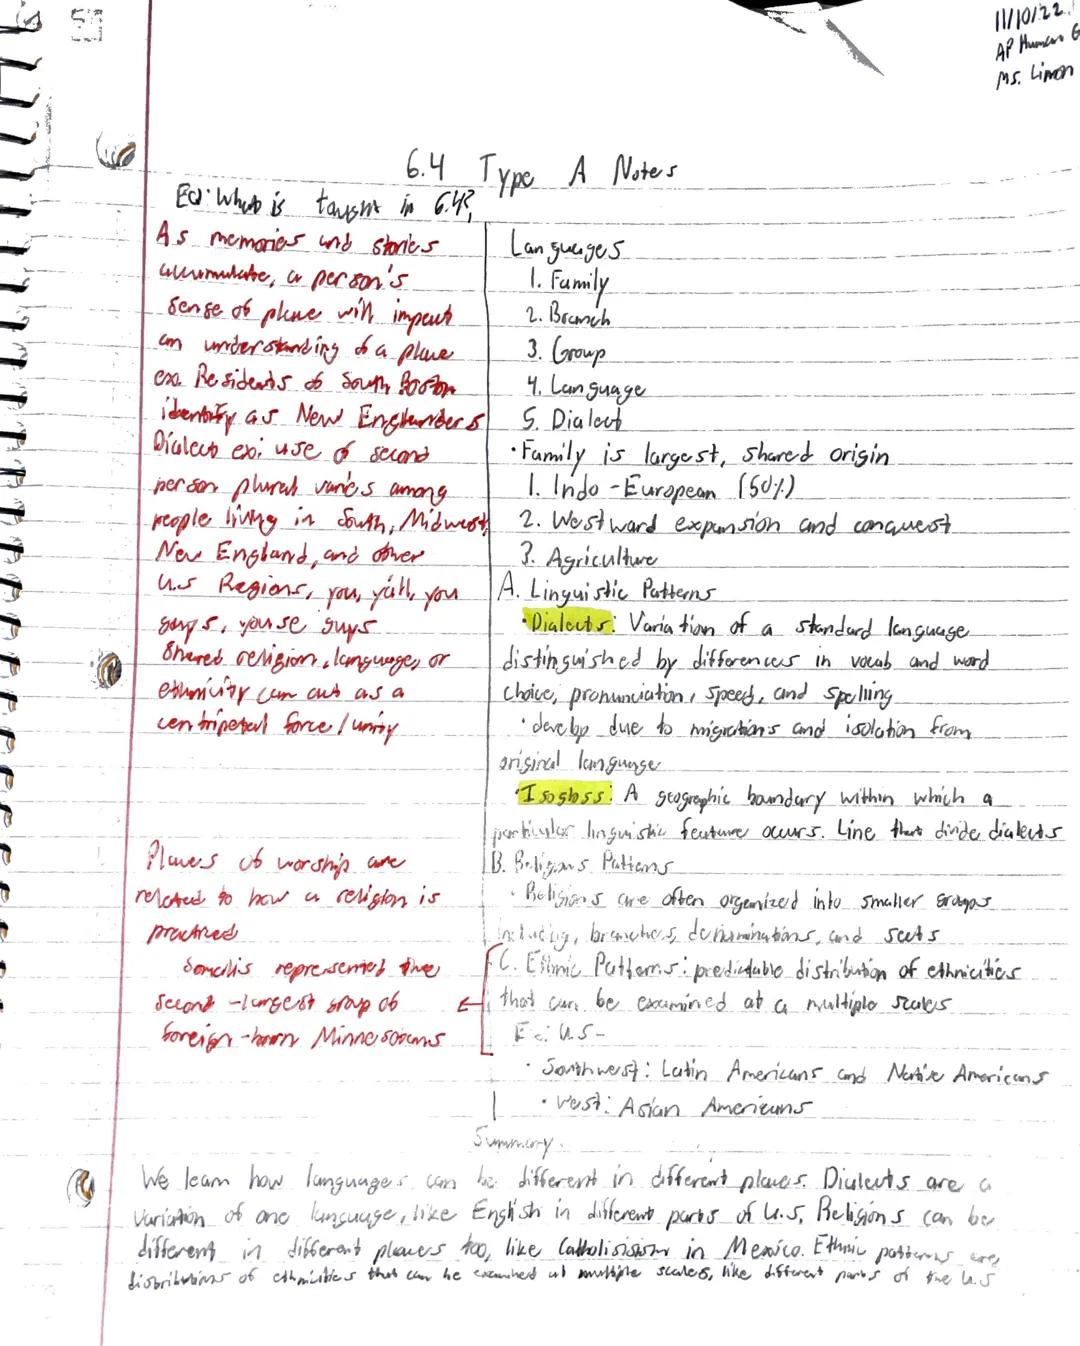 11/10/22
AP Human G
Ms. Limon
6.4 Type A Notes
EQ: What is taught in 6.4?
As memories and stories
accumulate, a person's
sense of place will impact
an understanding of a place
ex. Residents of South Boston
identify as New Englanders
Dialect ex: use of second
person plural varies among
people living in South, Midwest,
New England, and other
U.S Regions, you, y'all, you
guys, youse guys
Shared religion, language, or
ethnicity can act as a
centripetal force/unity
Places of worship are
related to how a religion is
practiced
Somalis represented the
second-largest group of
foreign-born Minnesotans
Languages
1. Family
2. Branch
3. Group
4. Language
5. Dialect
• Family is largest, shared origin
1. Indo-European (50%)
2. Westward expansion and conquest
3. Agriculture
A. Linguistic Patterns
• Dialects: Variation of a standard language
distinguished by differences in vocab and word
choice, pronunciation, speed, and spelling
• develop due to migrations and isolation from
original language
• Isogloss: A geographic boundary within which a
particular linguistic feature occurs. Line that divide dialects
B. Religions Pattens
• Religions are often organized into smaller groups
including, branches, denominations, and sects
C. Ethnic Patterns: predictable distribution of ethnicities
that can be examined at a multiple scales
Ex: U.S-
• Southwest: Latin Americans and Native Americans
• West: Asian Americans
Summary.
We learn how languages can be different in different places. Dialects are a
variation of one language, like English in different parts of U.S. Religions can be
different in different places too, like in Mexico. Ethnic patterns are,
distributions of ethnicities that can be examined at multiple scales, like different parts of the U.S